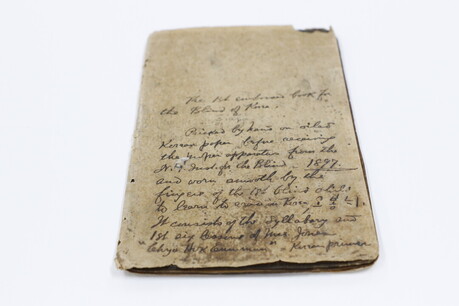 The 1st embossed book for
the Blind of Korea.
Pricked by hand on oiled
Korean paper before receiving
the apparatus from the
N.Y. Inst. for the Blind - 1897.
and worn smooth by the
fingers of the 1st blind child
to learn to read in Korea
It consists of the Syllabary and
1st six lessons of Mrs Jones
" Korean primer